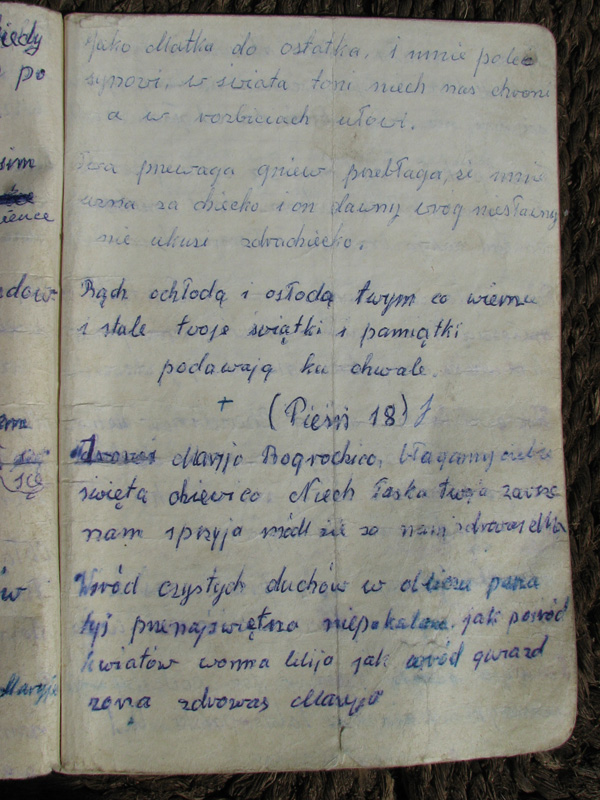 iedy
po
sim
ience
dow
em
się
ów
Maryjo
Jako Matka do ostatka, i mnie poleć
synowi, w świata toni niech nas chroni
a w rozbiciach ułowi.
Twa przewaga gniew przebłaga, że mnie
uzna za dziecko i on dawny wróg niesławny
nie ukusi zdradziecko.
Bądź ochłodą i osłodą twym co wiernie
i stale twoje świątki i pamiątki
podawają ku chwale.
+ (Pieśń 18)
Maryjo Bogrodzico, błagamy ciebie
święta dziewico. Niech łaska twoja zawsze
nam sprzyja módl się za nami zdrowaś
Wśród czystych duchów w obliczu pana
tyś przenajświętsza niepokalana, jak pośród
kwiatów wonna lilija jak wśród gwiazd
zorza zdrowaś Maryjo